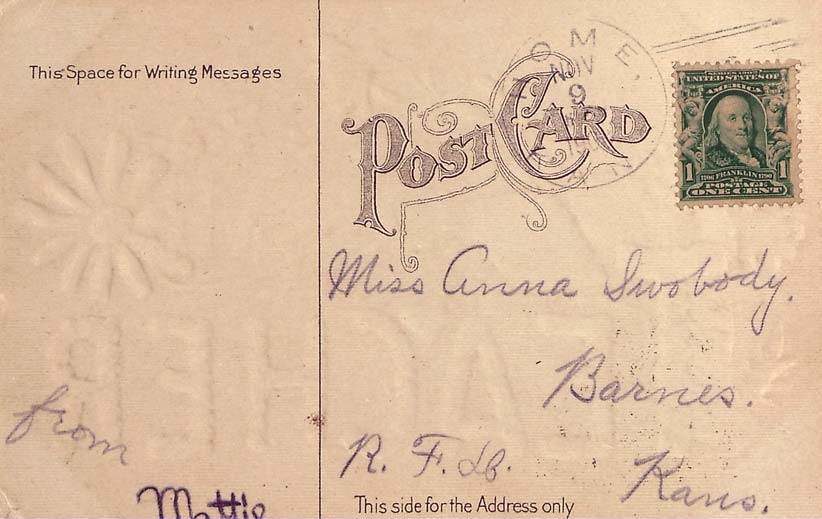 This Space for Writing Messages
POST CARD
NOV
9
SERIES 1902
UNITED STATES OF
AMERICA
1 1
1706 FRANKLIN 1790
POSTAGE
ONE CENT
Miss Anna Swobody.
Barnes.
R. F. D. Kans.
from
Mattie
This side for the Address only